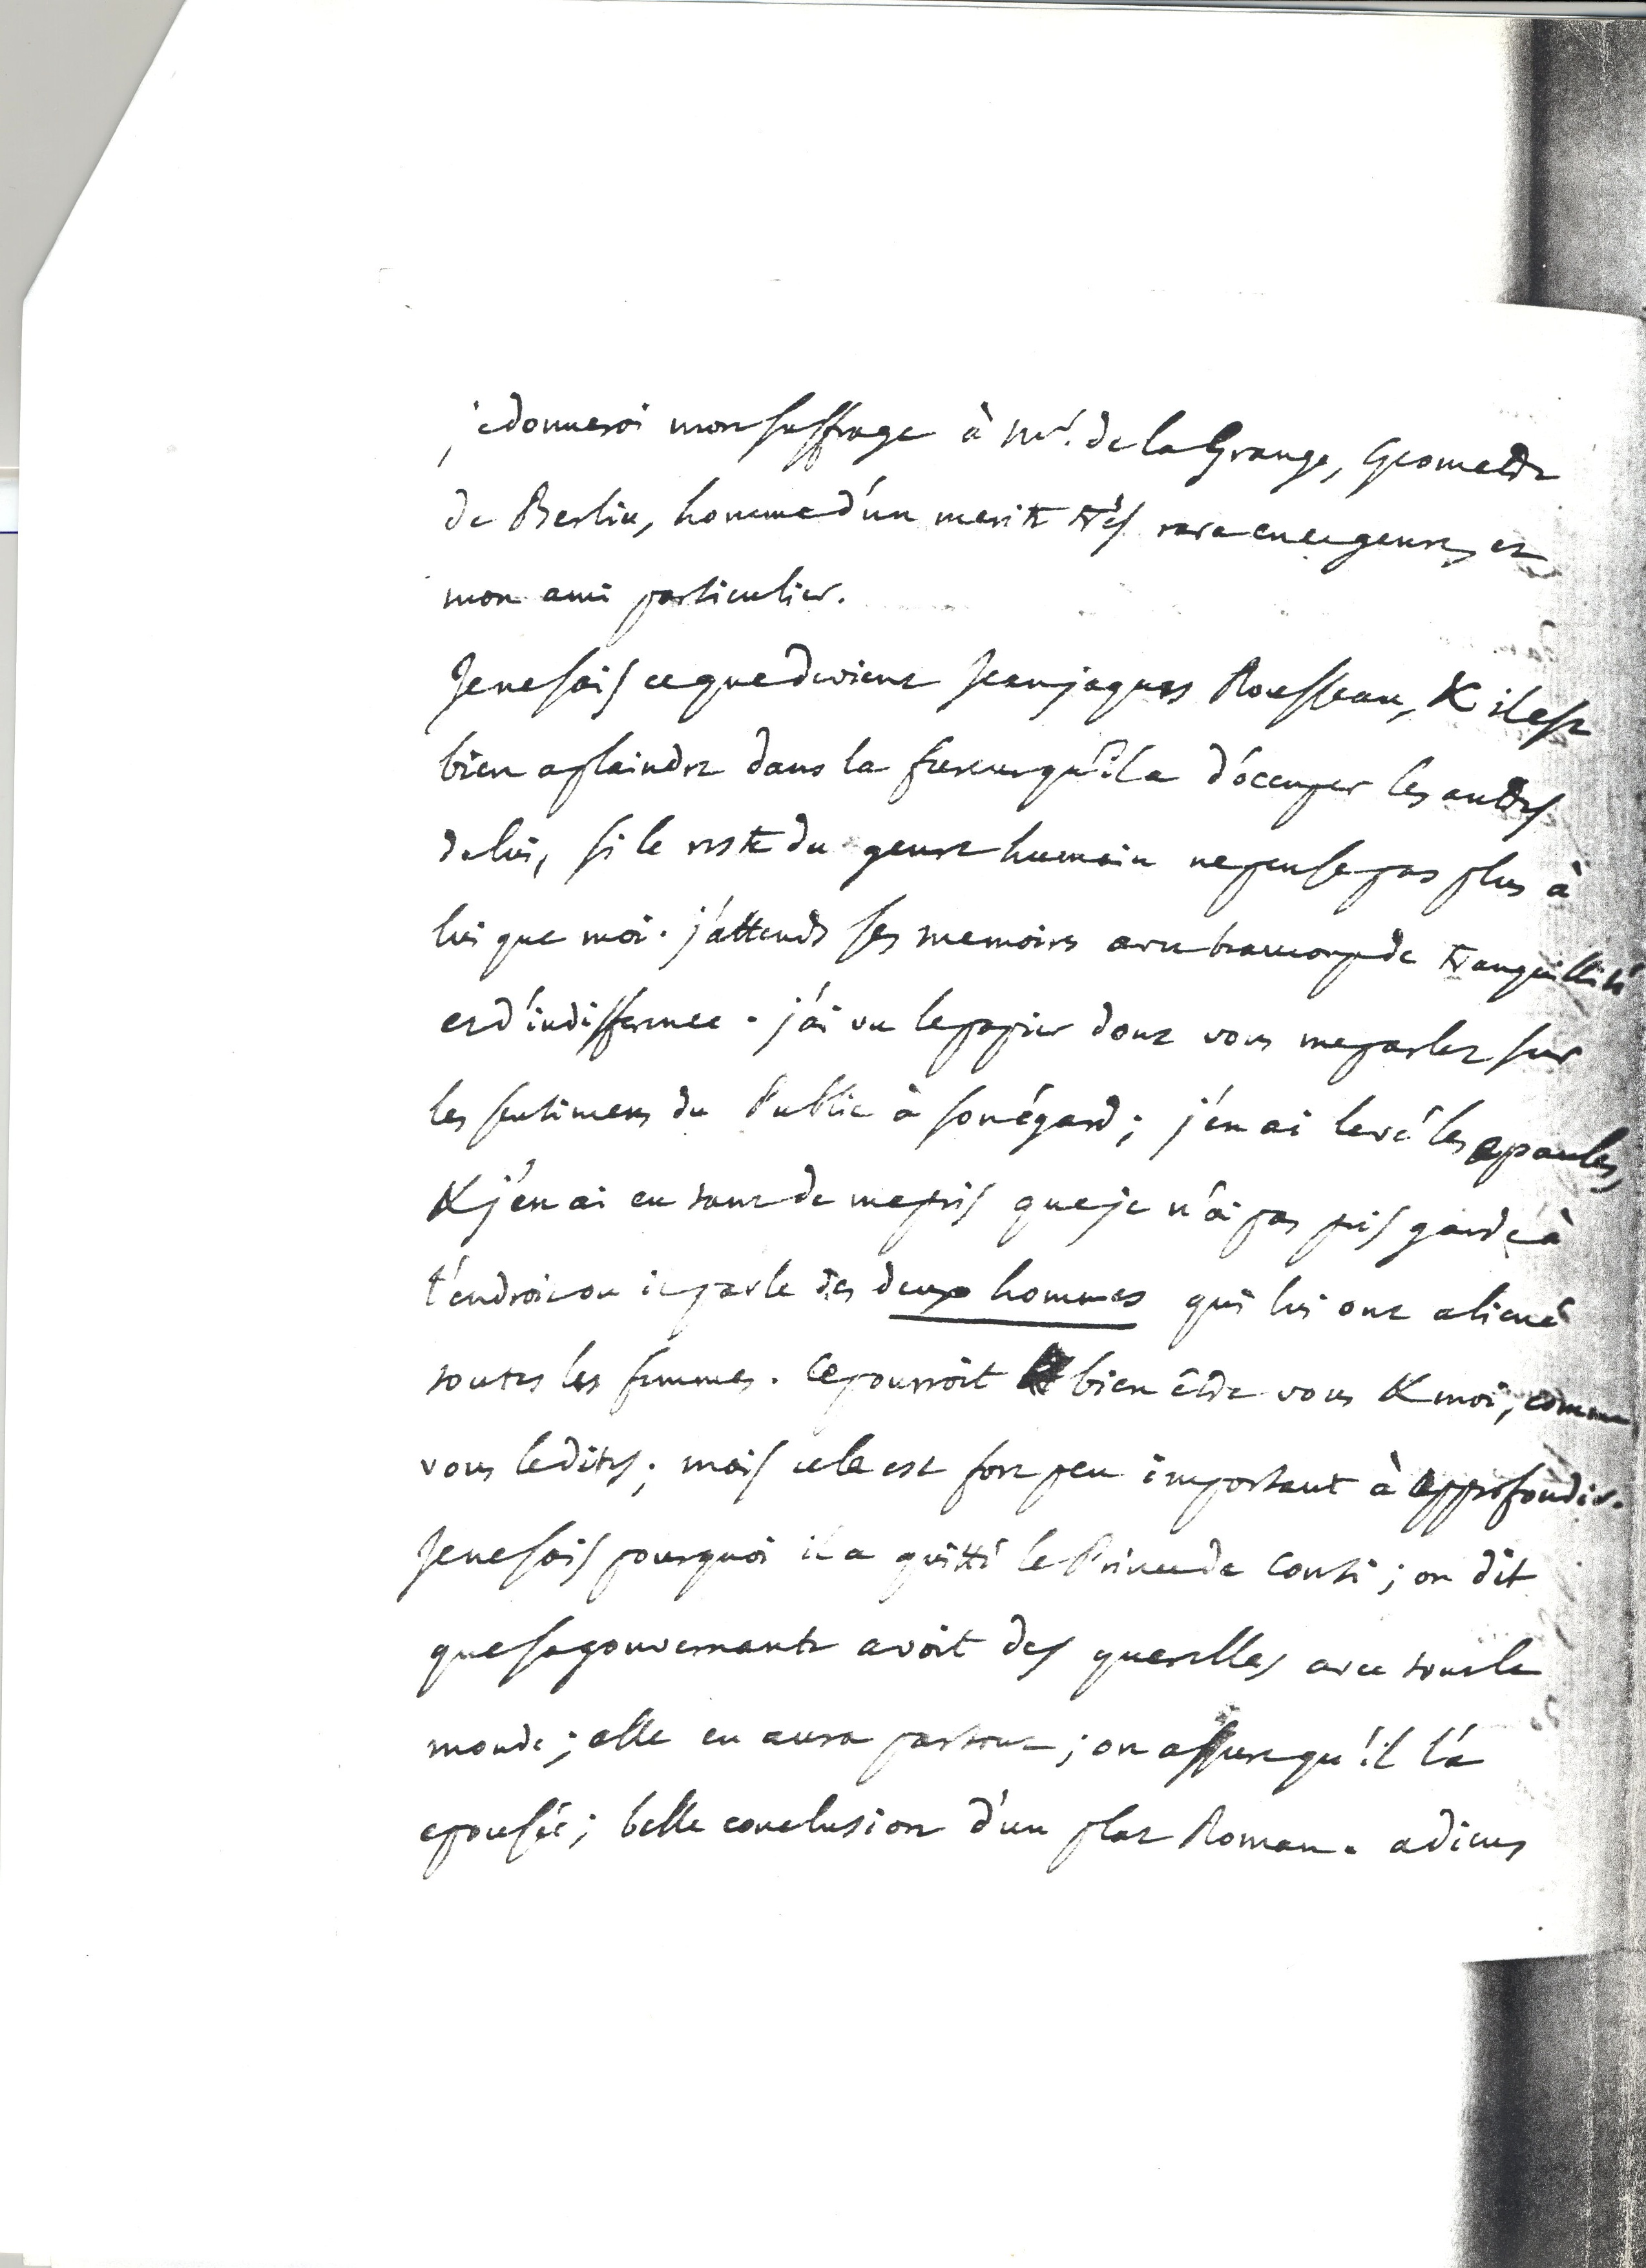 je donnerai mon suffrage à Mr. de la Grange, Geometre
de Berlin, homme d'un merite très rare en ce genre, et
mon ami particulier.
Je ne sais ce que devient Jean jaques Rousseau, & il est
bien a plaindre dans la fureur qu'il a d'occuper les autres
de lui, si le reste du genre humain ne pense pas plus à
lui que moi. j'attends ses memoires avec beaucoup de tranquillité
et d'indifference. j'ai vu le papier dont vous me parlez sur
les sentimens du Public à son égard; j'en ai levé les epaules,
& j'en ai eu tant de mepris que je n'ai pas pris garde à
l'endroit ou il parle des deux hommes qui lui ont aliené
toutes les femmes. Ce pourroit bien être vous & moi, comme
vous le dites; mais cela est fort peu important à approfondir.
Je ne sais pourquoi il a quitté le Prince de Conti; on dit
que sa gouvernante avoit des querelles avec tout le
monde; elle en aura partout; on assure qu'il l'a
epousée; belle conclusion d'un plat Roman. adieu